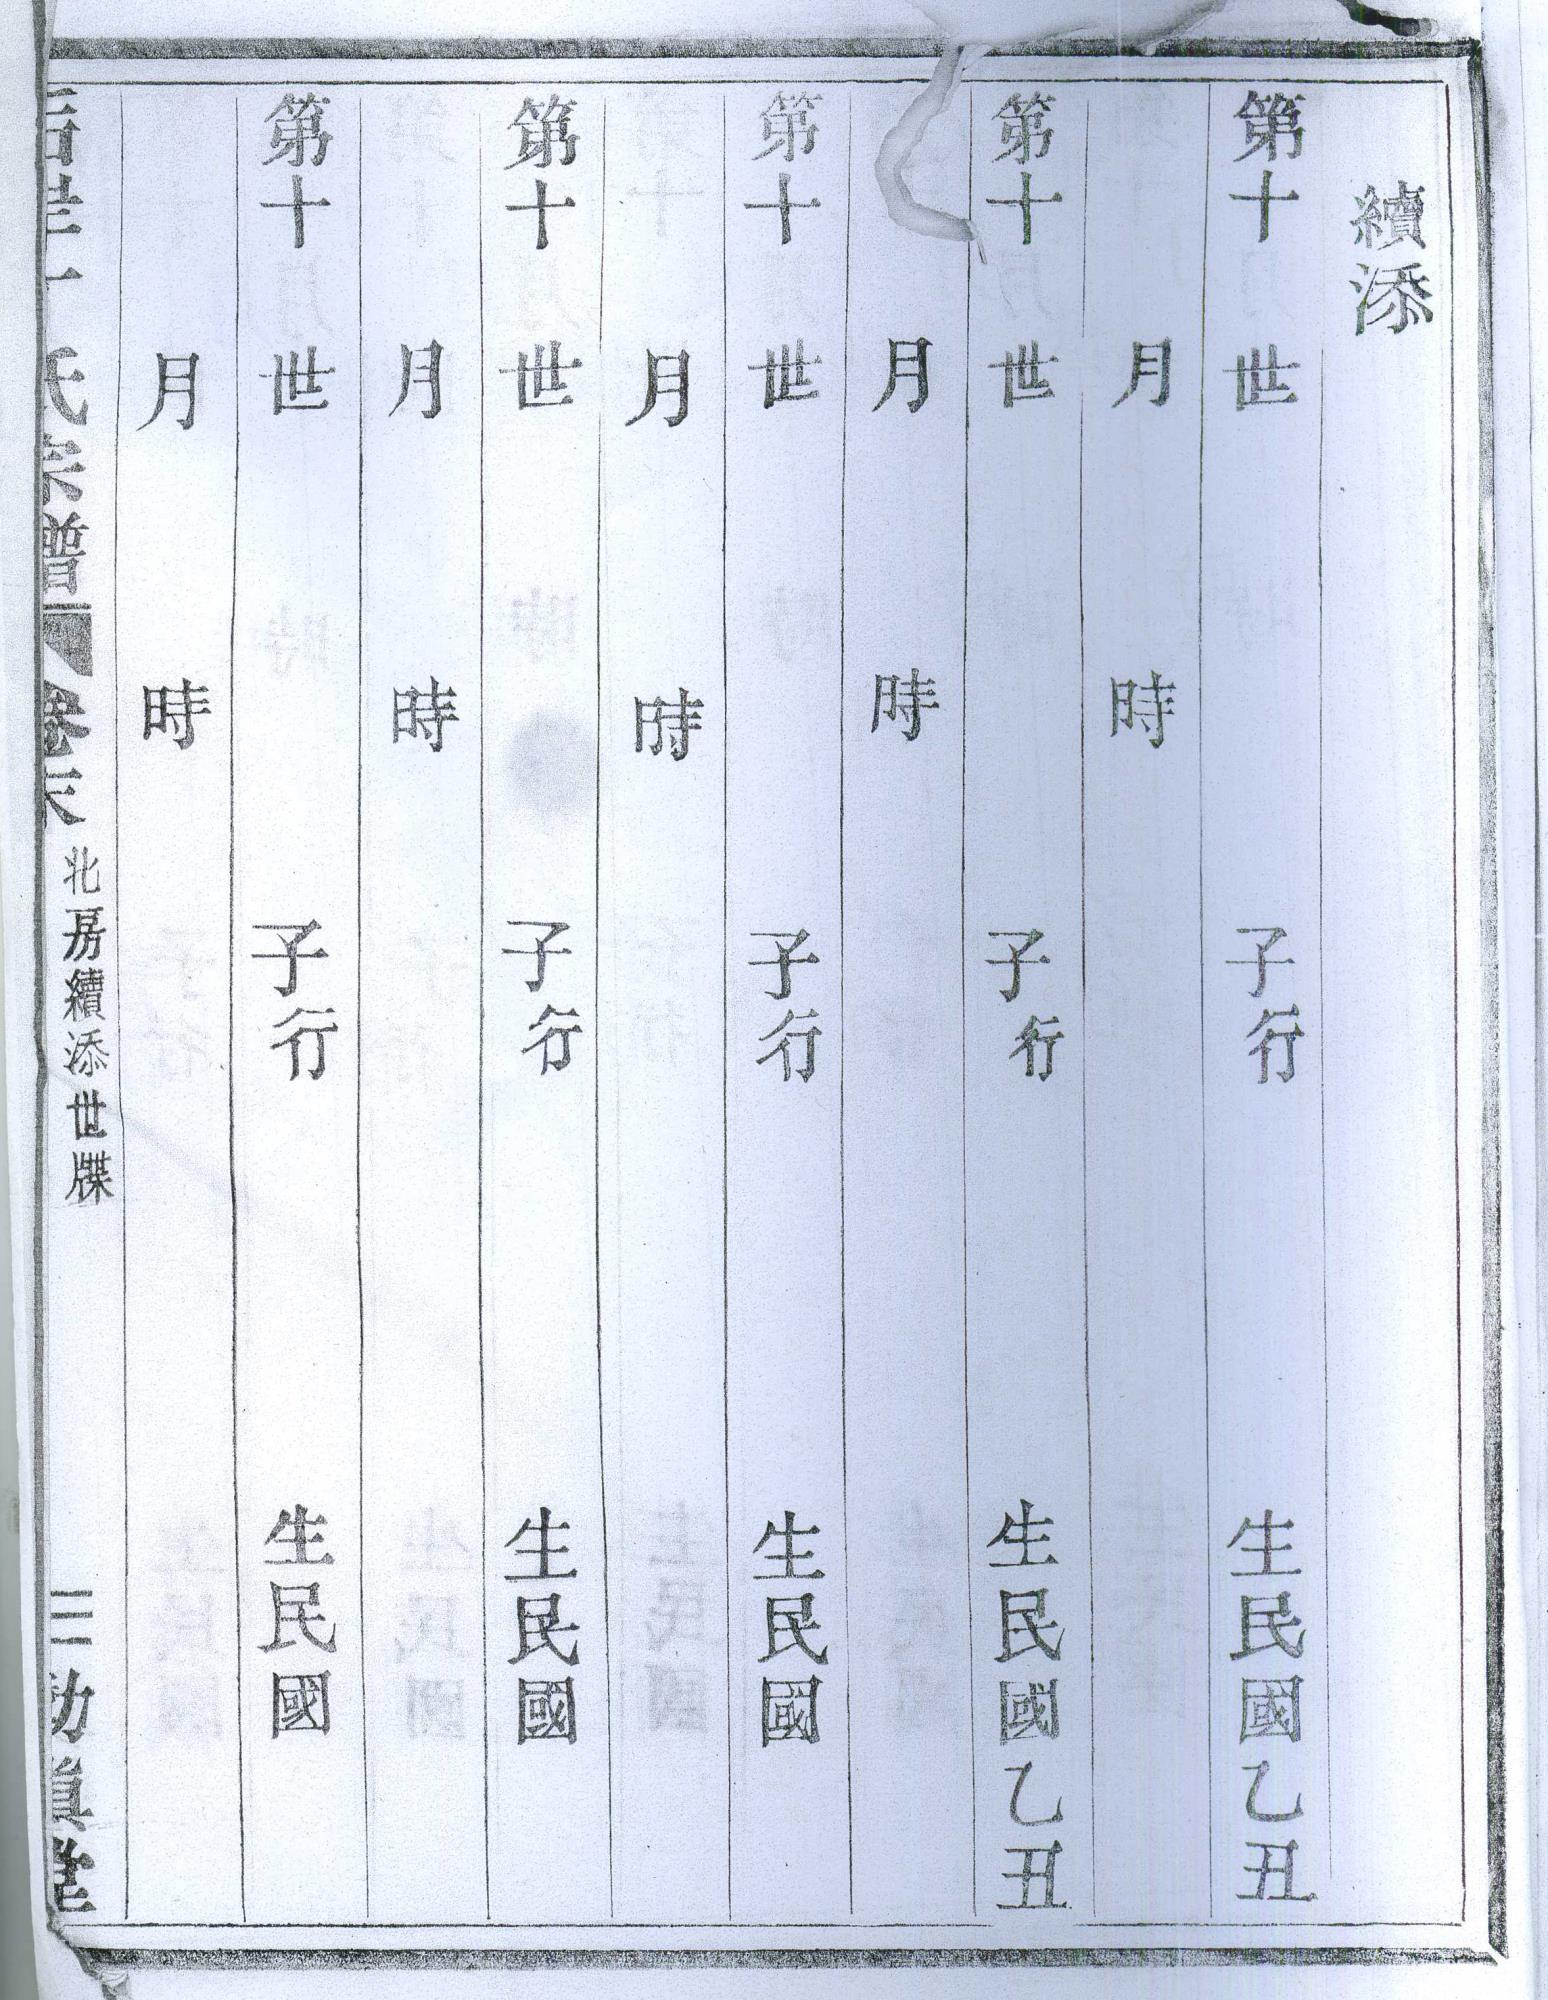 續添
第十　世　子行　生民國乙丑
月　時
第十　世　子行　生民國乙丑
月　時
第十　世　子行　生民國
月　時
第十　世　子行　生民國
月　時
第十　世　子行　生民國
月　時
氏宗譜　卷末　北房續添世牒　三　堂